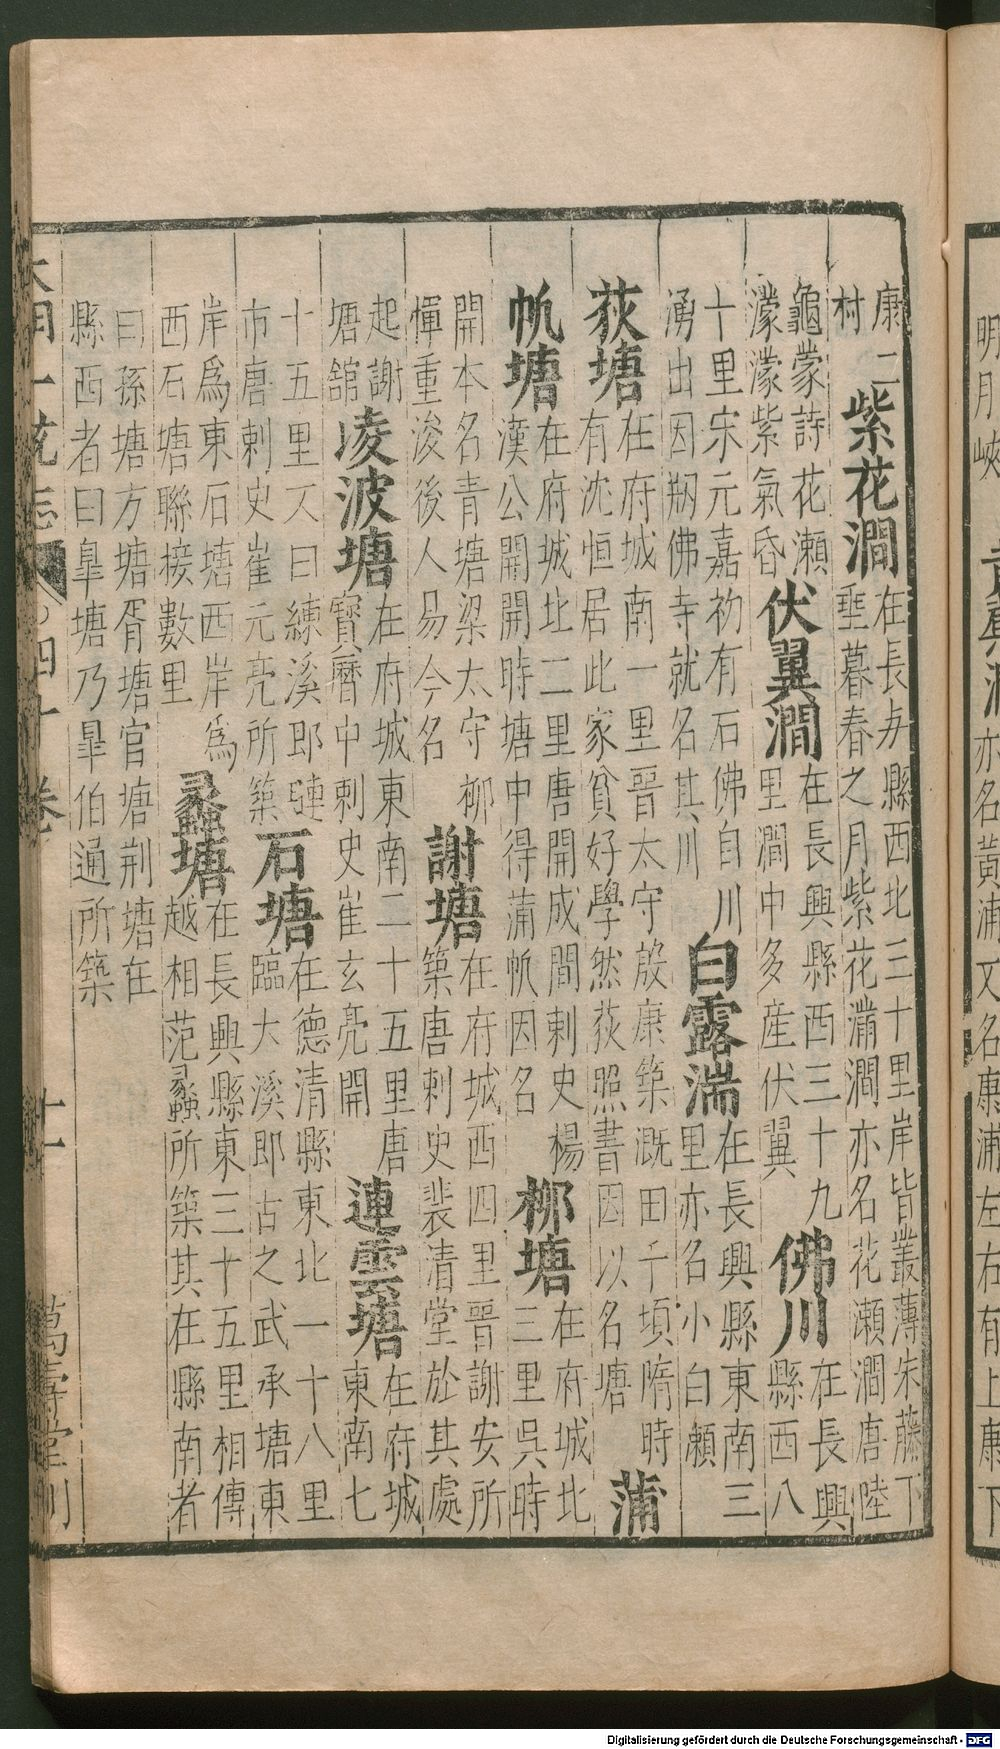 明月峽 黃浦 亦名黃浦又名康浦左右有上康下
康二
村
紫花澗
在長𠀾縣西北三十里岸皆叢薄朱藤下
垂暮春之月紫花滿澗亦名花瀨澗唐陸
龜蒙詩花瀨
濛濛紫氣昏
伏翼澗
在長興縣西三十九
里澗中多産伏翼
佛川
在長興
縣西八
十里宋元嘉初有石佛自川
湧出因剏佛寺就名其川
白露湍
在長興縣東南三
里亦名小白瀨
荻塘
在府城南一里晉太守殷康築溉田千頃隋時
有沈恒居此家貧好學然荻照書因以名塘
蒲
帆塘
在府城北二里唐開成間刺史楊
漢公開開時塘中得蒲帆因名
柳塘
在府城北
三里吳時
開本名青塘梁太守柳
惲重浚後人易今名
謝塘
在府城西四里晉謝安所
築唐刺史裴清堂於其處
起謝
塘舘
凌波塘
在府城東南二十五里唐
寶曆中刺史崔玄亮開
連雲塘
在府城
東南七
十五里又曰練溪即璉
市唐刺史崔元亮所築
石塘
在德清縣東北一十八里
臨大溪即古之武承塘東
岸爲東石塘西岸爲
西石塘聯接數里
蠡塘
在長興縣東三十五里相傳
越相范蠡所築其在縣南者
曰孫塘方塘胥塘官塘荆塘在
縣西者曰皐塘乃皐伯通所築
大明一統志 四十卷 十一 萬壽堂刊
Digitalisierung gefördert durch die Deutsche Forschungsgemeinschaft - DFG